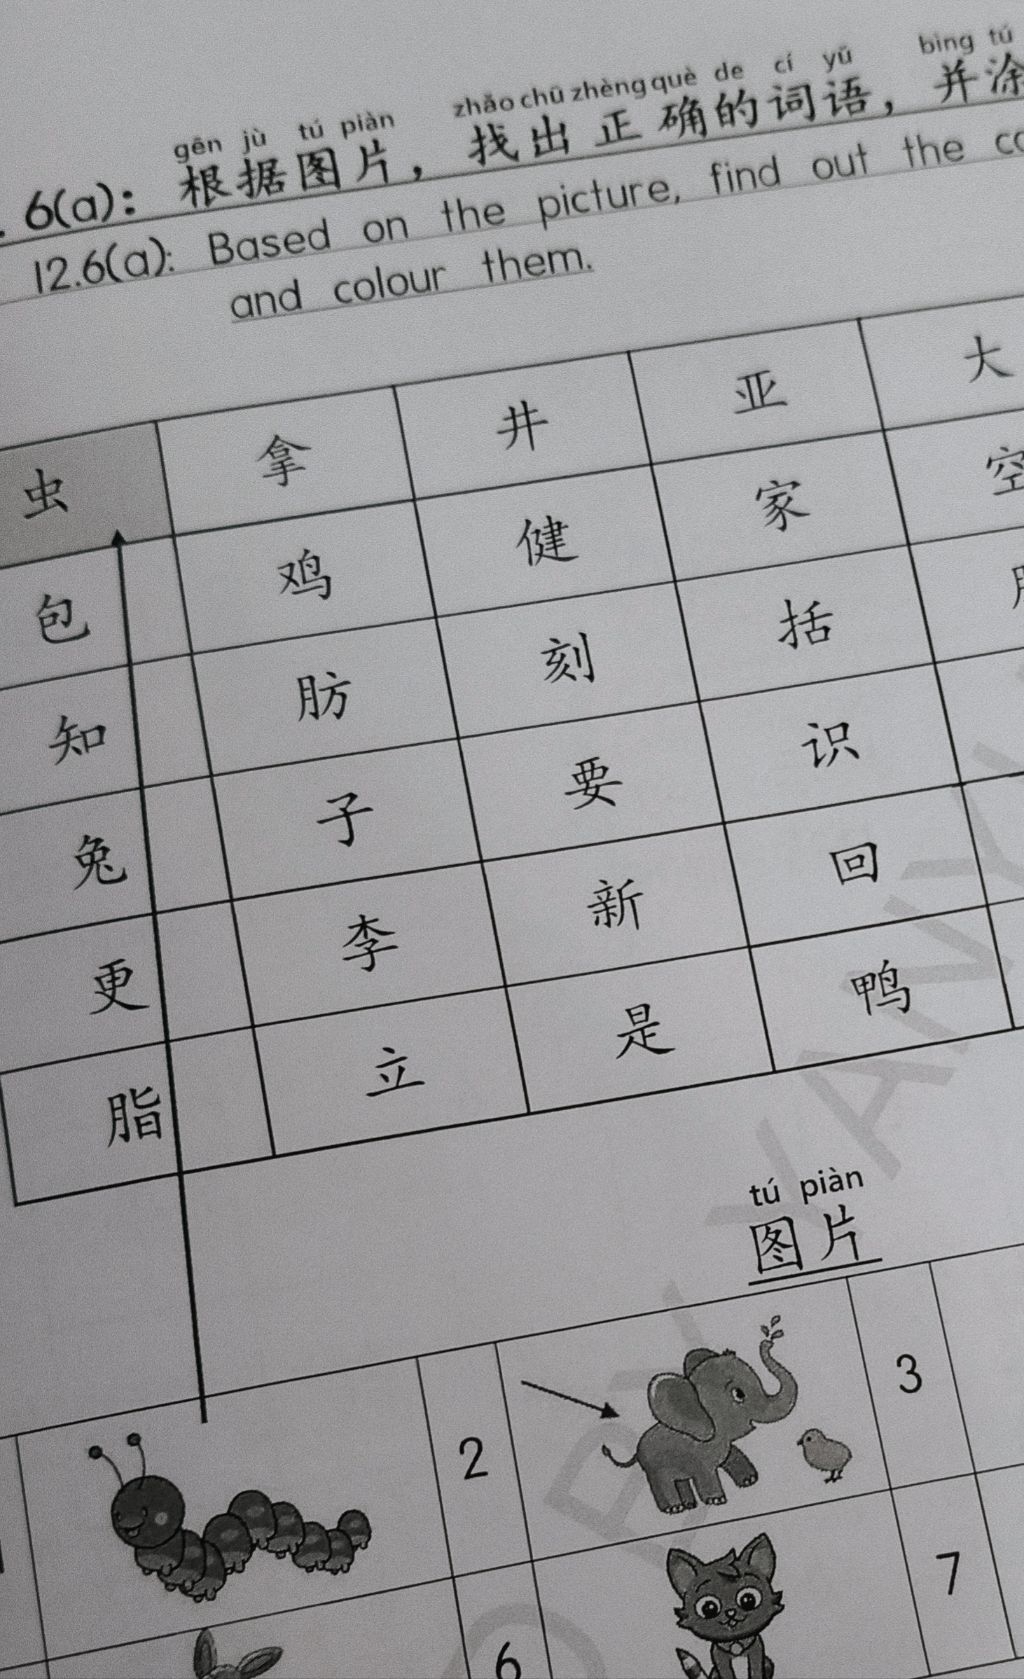 gēn jù tú piàn zhǎo chū zhèng què de cí yǔ bìng tú
6(a): 根据图片，找出正确的词语，并涂
12.6(a): Based on the picture, find out the
and colour them.
虫 拿 井 亚 大
包 鸡 健 家 空
知 肪 刻 括
兔 子 要 识
更 李 新 回
脂 立 是 鸭
tú piàn
图片
2 3
6 7
BY YANY